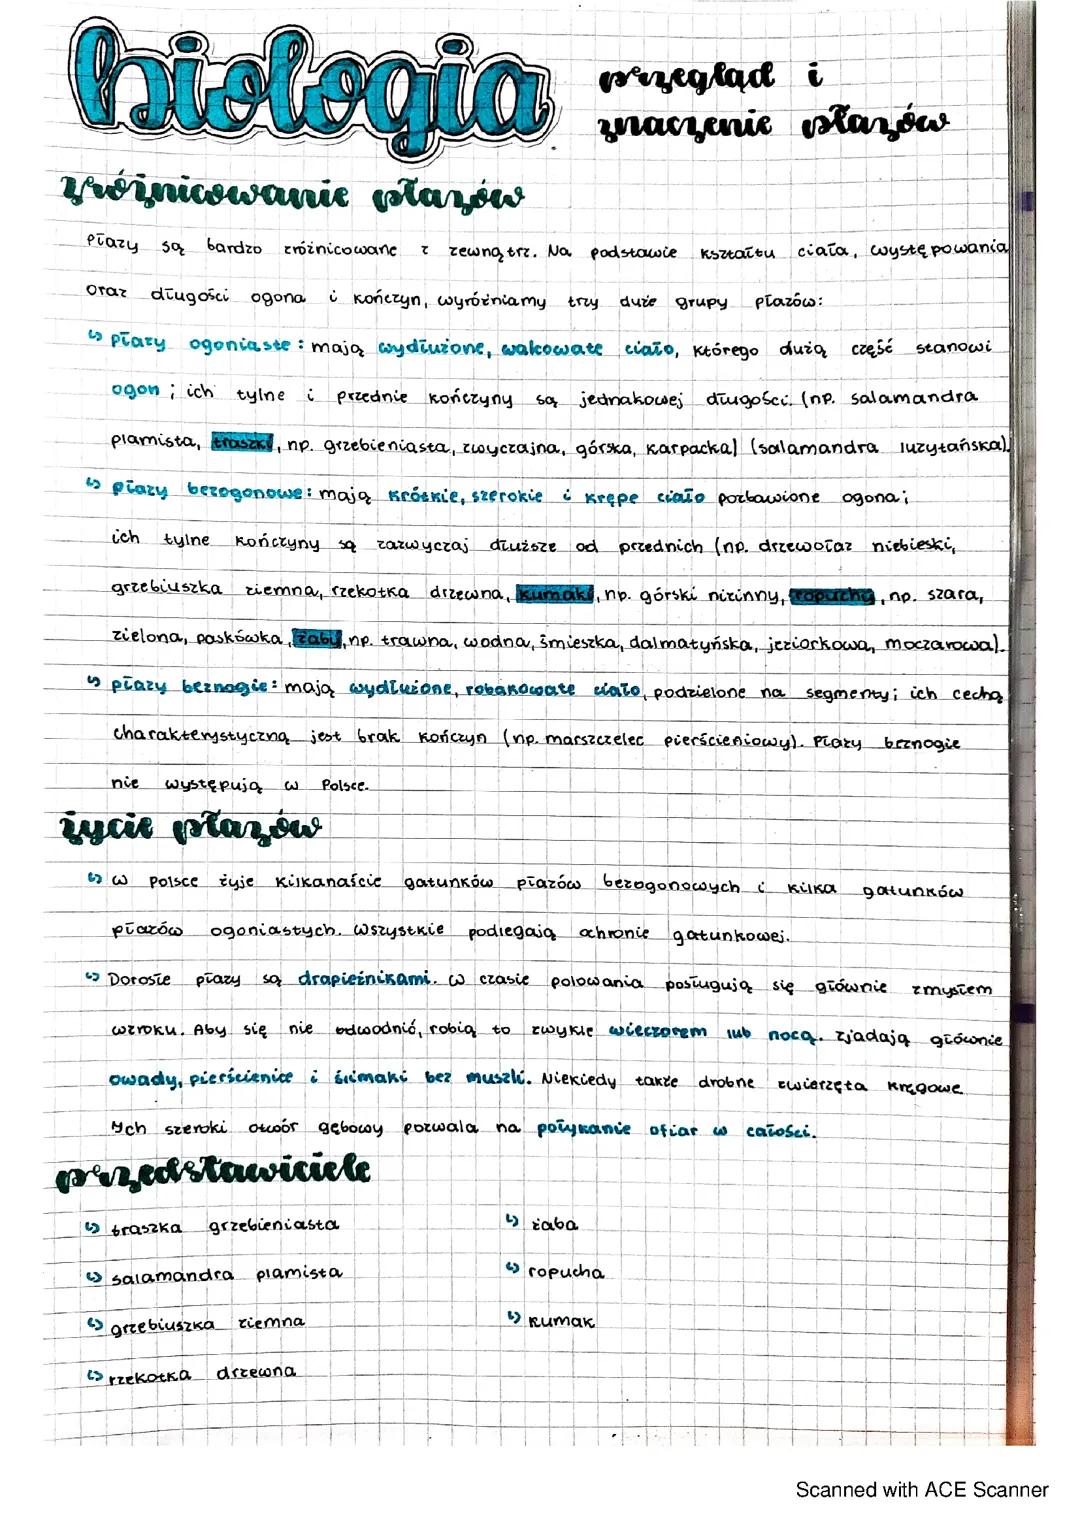 biologia
przegląd i
znaczenie płazów
zróżnicowanie płazów
Płazy są bardzo zróżnicowane z zewnątrz. Na podstawie kształtu ciała, występowania
oraz długości ogona i kończyn, wyróżniamy trzy duże grupy płazów:
↳ płazy ogoniaste: mają wydłużone, walcowate ciało, którego dużą część stanowi
ogon; ich tylne i przednie kończyny są jednakowej długości. (np. salamandra
plamista, traszki, np. grzebieniasta, zwyczajna, górska, karpacka) (salamandra luzytańska).
↳ płazy bezogonowe: mają krótkie, szerokie i krępe ciało pozbawione ogona;
ich tylne kończyny są zazwyczaj dłuższe od przednich (np. drzewołaz niebieski,
grzebiuszka ziemna, rzekotka drzewna, kumaki, np. górski nizinny, ropuchy, np. szara,
zielona, paskówka, żaby, np. trawna, wodna, śmieszka, dalmatyńska, jeziorkowa, moczarowa).
↳ płazy beznogie: mają wydłużone, robakowate ciało, podzielone na segmenty; ich cechą
charakterystyczną jest brak kończyn (np. marszczelec pierścieniowy). Płazy beznogie
nie występują w Polsce.
życie płazów
↳ w Polsce żyje kilkanaście gatunków płazów bezogonowych i kilka gatunków
płazów ogoniastych. Wszystkie podlegają ochronie gatunkowej.
↳ Dorosłe płazy są drapieżnikami. W czasie polowania posługują się głównie zmysłem
wzroku. Aby się nie odwodnić, robią to zwykle wieczorem lub nocą. Zjadają głównie
owady, pierścienice i ślimaki bez muszli. Niekiedy także drobne zwierzęta kręgowe.
Ich szeroki otwór gębowy pozwala na połykanie ofiar w całości.
przedstawiciele
↳ traszka grzebieniasta
↳ salamandra plamista
↳ grzebiuszka ziemna
↳ rzekotka drzewna
↳ żaba
↳ ropucha
↳ kumak
Scanned with ACE Scanner